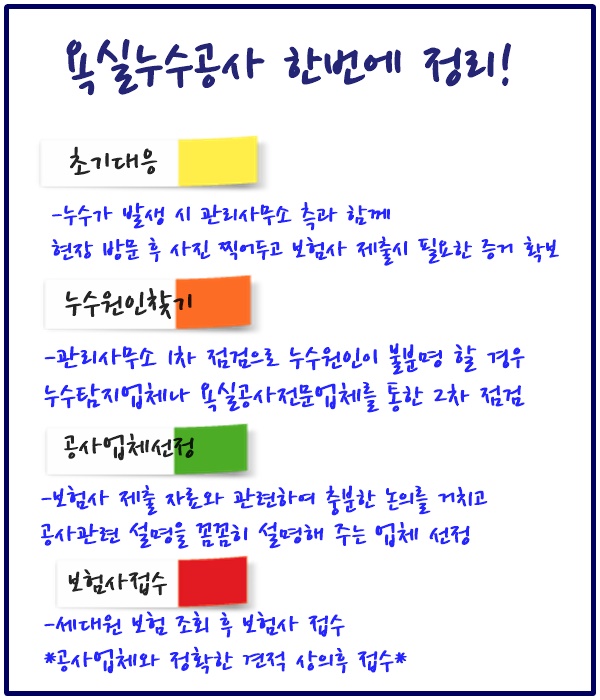 욕실누수공사 한번에 정리!
초기대응
-누수가 발생 시 관리사무소 측과 함께
현장 방문 후 사진 찍어두고 보험사 제출시 필요한 증거 확보
누수원인찾기
-관리사무소 1차 점검으로 누수원인이 불분명 할 경우
누수탐지업체나 욕실공사전문업체를 통한 2차 점검
공사업체선정
-보험사 제출 자료와 관련하여 충분한 논의를 거치고
공사관련 설명을 꼼꼼히 설명해 주는 업체 선정
보험사접수
-세대원 보험 조회 후 보험사 접수
*공사업체와 정확한 견적 상의후 접수*